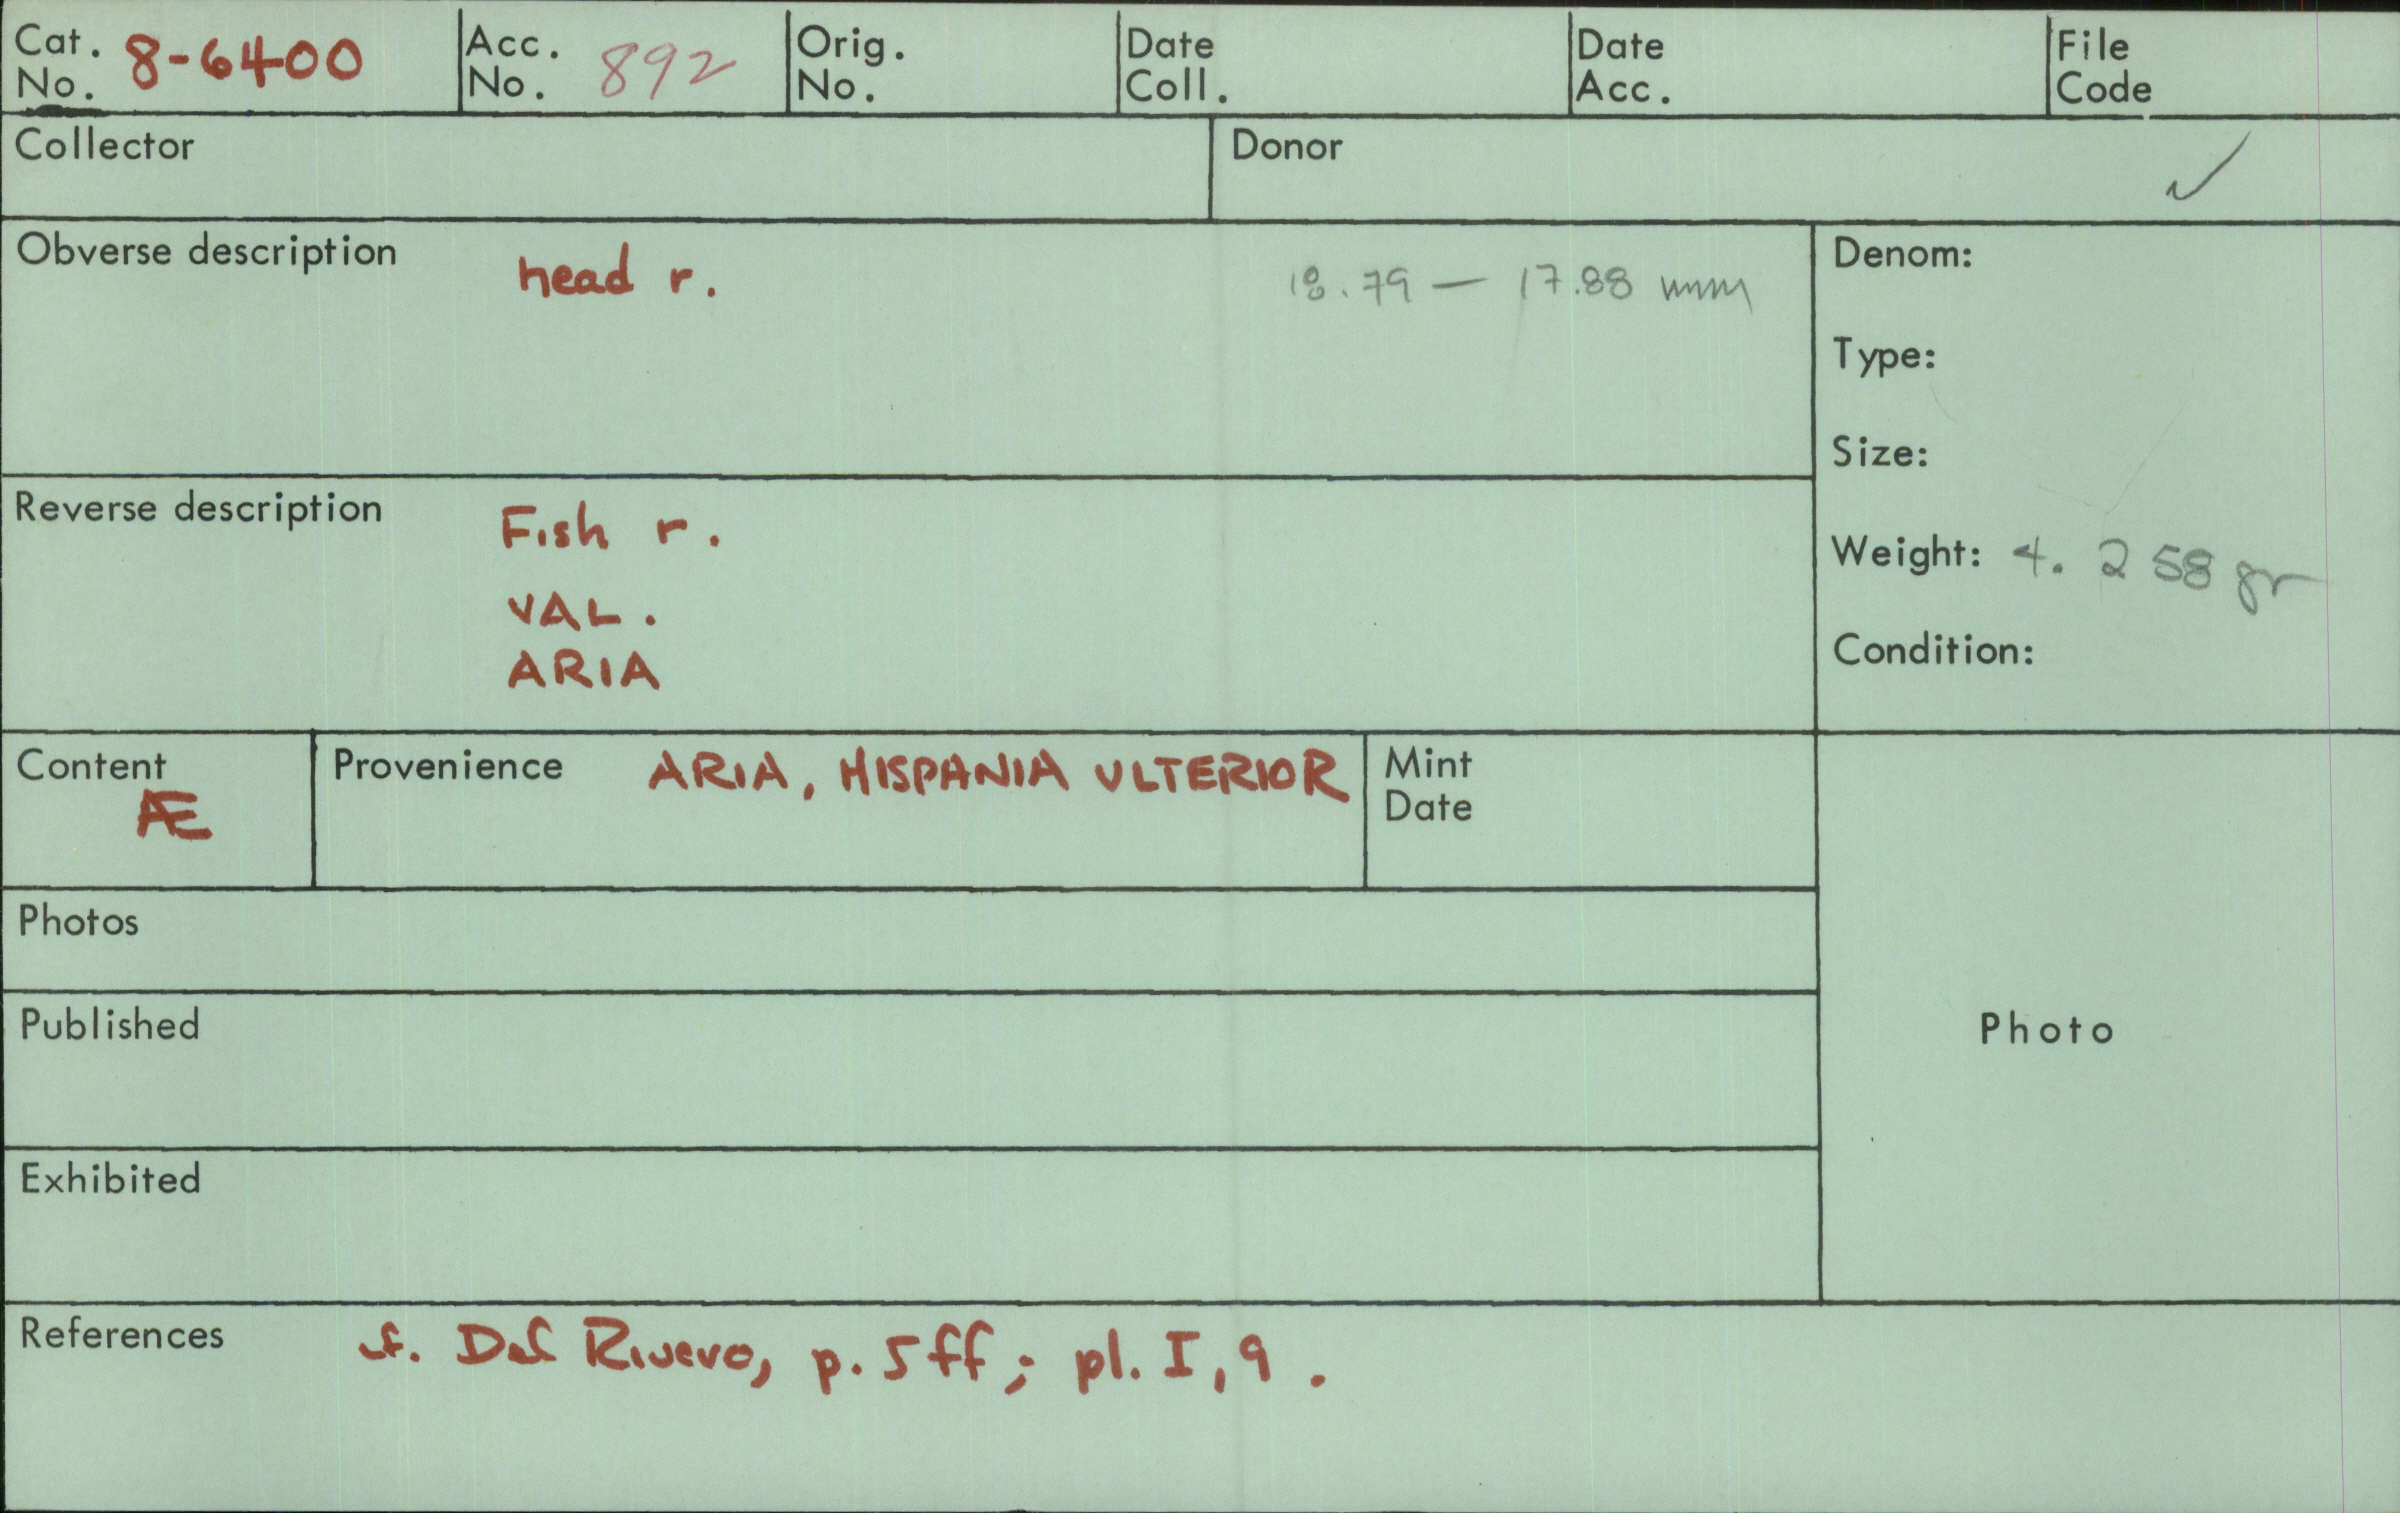 Cat. No. 8-6400 Acc. No. 892 Orig. No. Date Coll. Date Acc. File Code
Collector Donor ✓
Obverse description head r. 18.79 — 17.88 mm
Denom:
Type:
Size:
Weight: 4.258 gr
Condition:
Reverse description Fish r.
VAL.
ARIA
Content Æ Provenience ARIA, HISPANIA ULTERIOR Mint Date
Photos
Published
Photo
Exhibited
References cf. Del Rivero, p. 5ff; pl. I, 9.